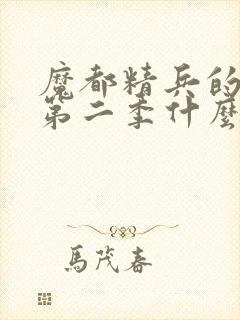 魔都精兵的
第二季什麼
馬茂春